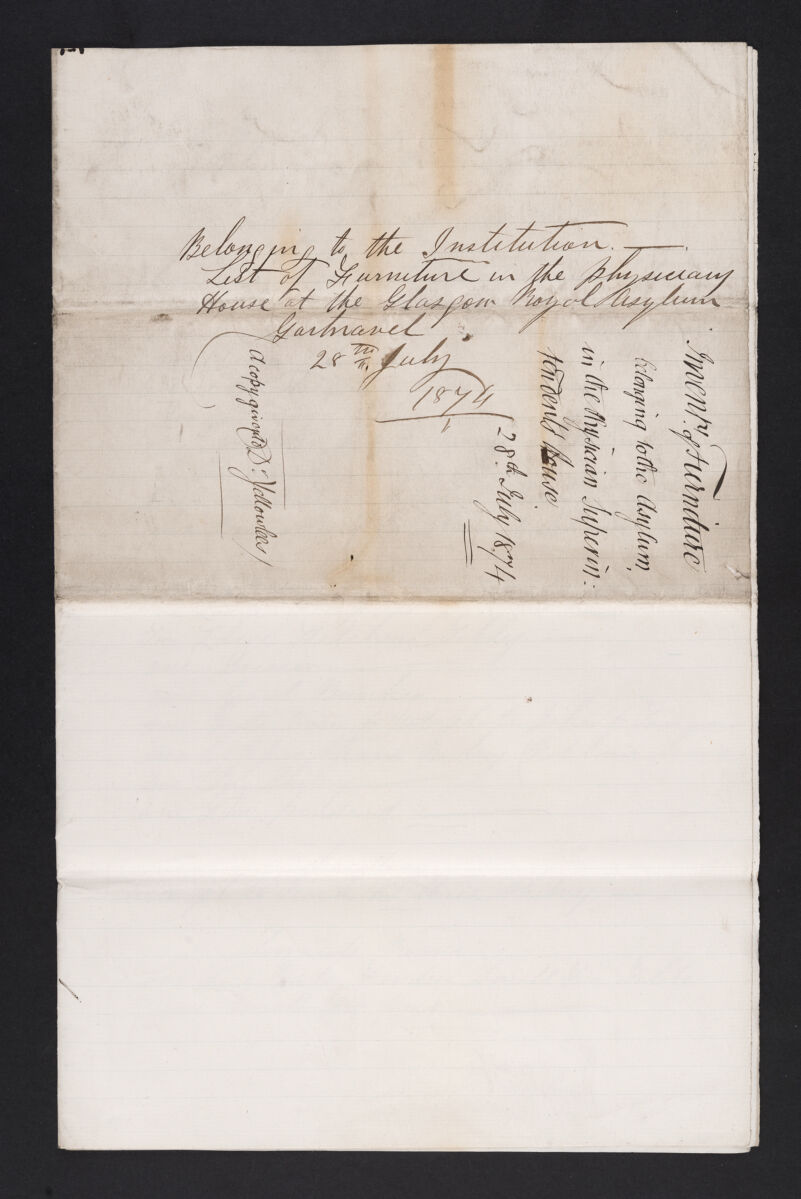 Belonging to the Institution. —
List of Furniture in the physicians
House at the Glasgow Royal Asylum
Gartnavel
28th July
1874
Inventy. of Furniture
belonging to the Asylum,
in the Physician Superin:
tendent's House
28th July 1874
(A copy given to Dr. Yellowlees)